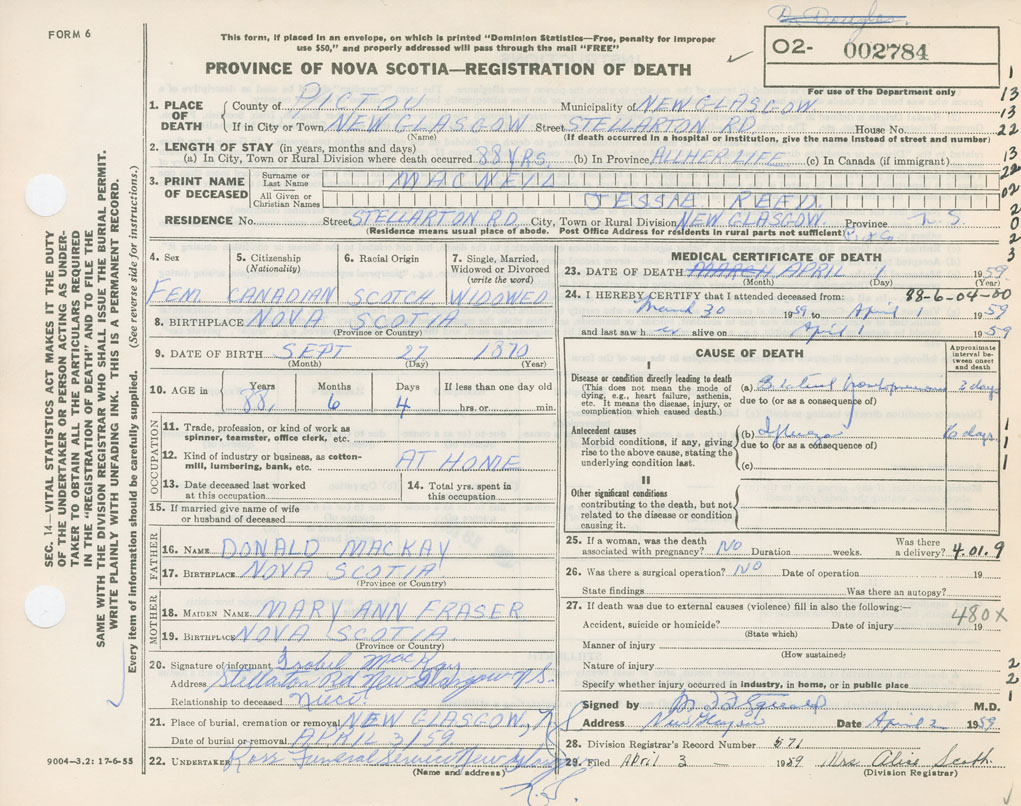 FORM 6
This form, if placed in an envelope, on which is printed "Dominion Statistics—Free, penalty for improper
use $50," and properly addressed will pass through the mail "FREE"
PROVINCE OF NOVA SCOTIA—REGISTRATION OF DEATH
O2- 002784
For use of the Department only
1. PLACE OF DEATH
County of PICTOU Municipality of NEW GLASGOW
If in City or Town NEW GLASGOW Street STELLARTON RD House No.
(Name) (If death occurred in a hospital or institution, give the name instead of street and number)
2. LENGTH OF STAY (in years, months and days)
(a) In City, Town or Rural Division where death occurred 88 YRS. (b) In Province ALL HER LIFE (c) In Canada (if immigrant)
3. PRINT NAME OF DECEASED
Surname or Last Name
All Given or Christian Names JESSIE
RESIDENCE No. Street STELLARTON RD. City, Town or Rural Division NEW GLASGOW Province N.S.
(Residence means usual place of abode. Post Office Address for residents in rural parts not sufficient)
13
13
22
13
22
02
2
0
2
3
4. Sex FEM.
5. Citizenship (Nationality) CANADIAN
6. Racial Origin SCOTCH
7. Single, Married, Widowed or Divorced (write the word) WIDOWED
8. BIRTHPLACE NOVA SCOTIA
(Province or Country)
9. DATE OF BIRTH SEPT 27 1870
(Month) (Day) (Year)
10. AGE in Years 88, Months 6 Days 4 If less than one day old hrs. or min.
OCCUPATION
11. Trade, profession, or kind of work as spinner, teamster, office clerk, etc.
12. Kind of industry or business, as cotton-mill, lumbering, bank, etc. AT HOME
13. Date deceased last worked at this occupation
14. Total yrs. spent in this occupation
15. If married give name of wife or husband of deceased
FATHER
16. NAME DONALD MACKAY
17. BIRTHPLACE NOVA SCOTIA
(Province or Country)
MOTHER
18. MAIDEN NAME MARY ANN FRASER
19. BIRTHPLACE NOVA SCOTIA
(Province or Country)
20. Signature of informant Isabel MacKay
Address Stellarton Rd New Glasgow N.S.
Relationship to deceased Niece
21. Place of burial, cremation or removal NEW GLASGOW, N.S.
Date of burial or removal APRIL 3/59
22. UNDERTAKER Ross Funeral Service New Glasgow
(Name and address)
N.S.
MEDICAL CERTIFICATE OF DEATH
23. DATE OF DEATH MARCH APRIL 1 1959
(Month) (Day) (Year)
24. I HEREBY CERTIFY that I attended deceased from: 88-6-04-00
March 30 1959 to April 1 1959
and last saw her alive on April 1 1959
CAUSE OF DEATH
Approximate interval between onset and death
I
Disease or condition directly leading to death
(This does not mean the mode of dying, e.g., heart failure, asthenia, etc. It means the disease, injury, or complication which caused death.)
(a) Bilateral bronchopneumonia 2 days
due to (or as a consequence of)
Antecedent causes
Morbid conditions, if any, giving rise to the above cause, stating the underlying condition last.
(b) Influenza 6 days
due to (or as a consequence of)
(c)
1
1
1
II
Other significant conditions contributing to the death, but not related to the disease or condition causing it.
25. If a woman, was the death associated with pregnancy? NO Duration weeks. Was there a delivery? 4.01.9
26. Was there a surgical operation? NO Date of operation 19
State findings Was there an autopsy?
27. If death was due to external causes (violence) fill in also the following:—
480X
Accident, suicide or homicide? Date of injury 19
(State which)
Manner of injury
(How sustained)
Nature of injury
Specify whether injury occurred in industry, in home, or in public place
2
2
1
Signed by M.D.
Address New Glasgow Date April 2 1959
28. Division Registrar's Record Number 571
29. Filed APRIL 3 1959 Mrs Alice Scott
(Division Registrar)
SEC. 14—VITAL STATISTICS ACT MAKES IT THE DUTY
OF THE UNDERTAKER OR PERSON ACTING AS UNDER-
TAKER TO OBTAIN ALL THE PARTICULARS REQUIRED
IN THE "REGISTRATION OF DEATH" AND TO FILE THE
SAME WITH THE DIVISION REGISTRAR WHO SHALL ISSUE THE BURIAL PERMIT.
WRITE PLAINLY WITH UNFADING INK. THIS IS A PERMANENT RECORD.
Every item of information should be carefully supplied. (See reverse side for instructions.)
9004—3.2: 17-6-55